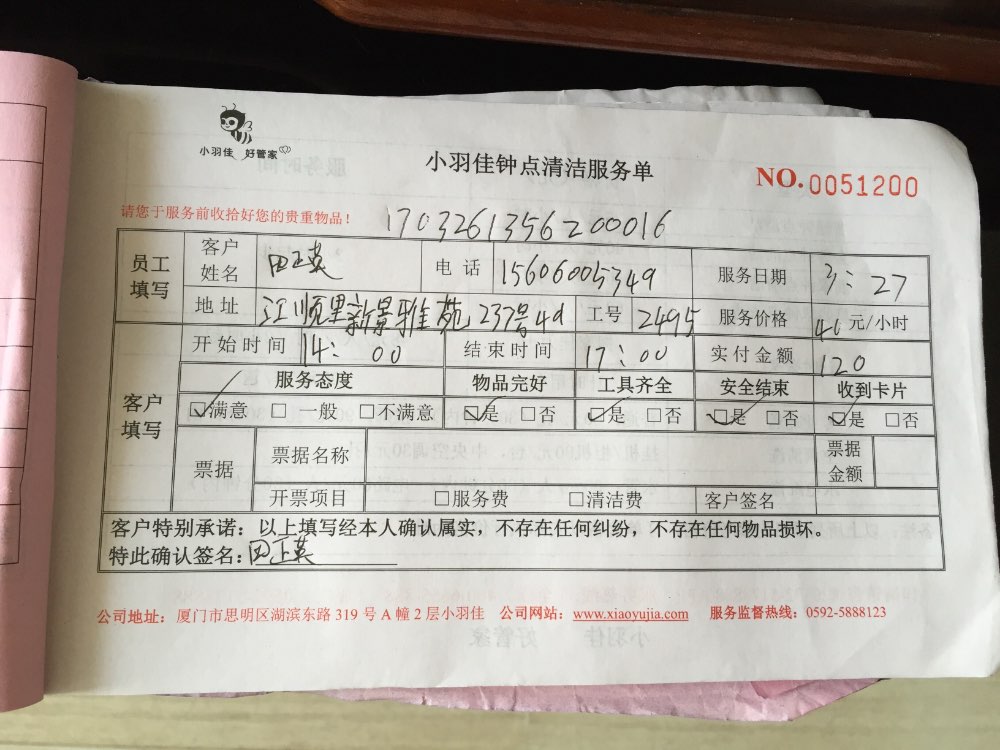 小羽佳 好管家
小羽佳钟点清洁服务单
NO.0051200
请您于服务前收拾好您的贵重物品！
1703261356200016
员工填写 客户姓名 田正英 电话 15606005349 服务日期 3：27
地址 江顺里新景雅苑237号4d 工号 2495 服务价格 40元/小时
客户填写 开始时间 14：00 结束时间 17：00 实付金额 120
服务态度 物品完好 工具齐全 安全结束 收到卡片
☑满意 □一般 □不满意 ☑是 □否 ☑是 □否 ☑是 □否 ☑是 □否
票据 票据名称 票据金额
开票项目 □服务费 □清洁费 客户签名
客户特别承诺：以上填写经本人确认属实，不存在任何纠纷，不存在任何物品损坏。
特此确认签名：田正英
公司地址：厦门市思明区湖滨东路 319 号 A 幢 2 层小羽佳 公司网站：www.xiaoyujia.com 服务监督热线：0592-5888123